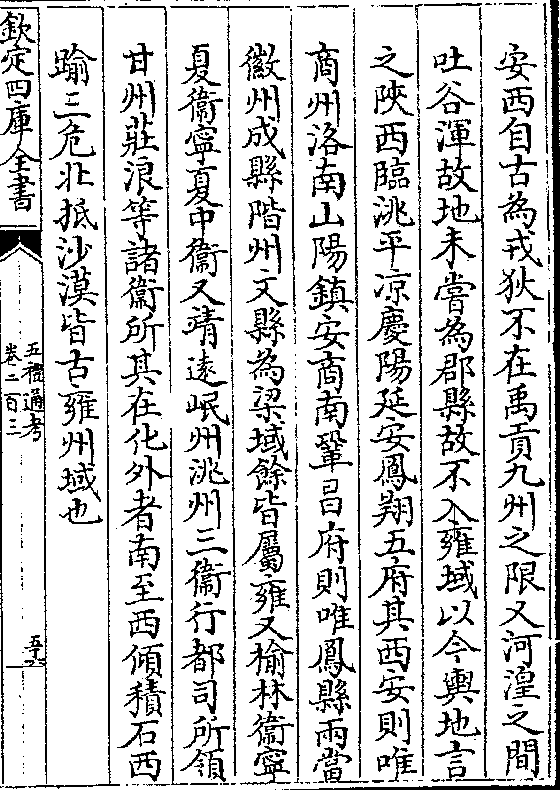 安西自古為戎狄不在禹貢九州之限又河湟之間
吐谷渾故地未嘗為郡縣故不入雍域以今輿地言
之陜西臨洮平凉慶陽延安鳳翔五府其西安則唯
商州洛南山陽鎮安商南鞏昌府則唯鳳縣兩當
徽州成縣階州文縣為梁域餘皆屬雍又榆林衞寧
夏衞寧夏中衞又靖逺岷州洮州三衞行都司所領
甘州莊浪等諸衞所其在化外者南至西傾積石西
踰三危北抵沙漠皆古雍州域也
欽定四庫全書
五禮通考
卷二百三